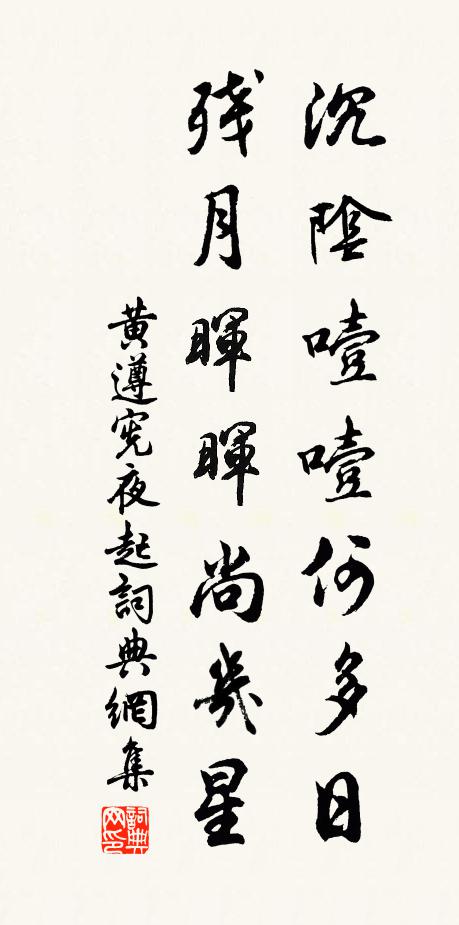 沉陰噎噎何多日
殘月暉暉尚幾星
黃遵憲夜起詞典網集
詞典网印